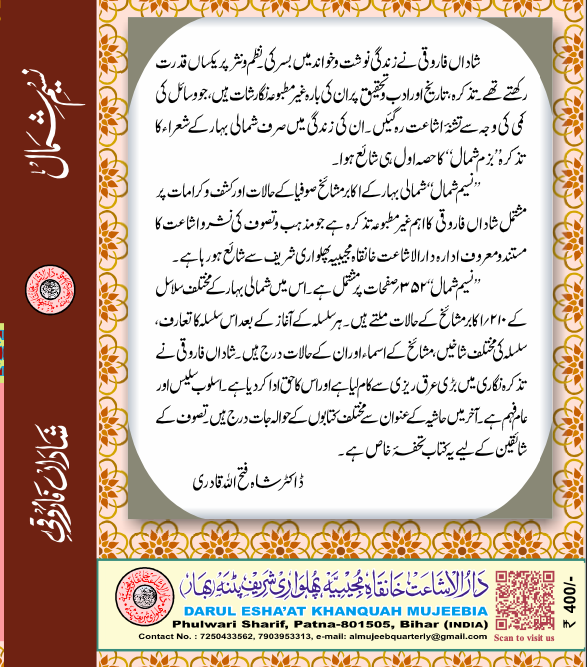 شاداں فاروقی نے زندگی نوشت وخواند میں بسر کی۔ نظم ونثر پر یکساں قدرت
رکھتے تھے۔ تذکرہ، تاریخ اور ادب وتحقیق پر ان کی بارہ غیر مطبوعہ نگارشات ہیں، جو وسائل کی
کمی کی وجہ سے تشنۂ اشاعت رہ گئیں۔ ان کی زندگی میں صرف شمالی بہار کے شعراء کا
تذکرہ ”بزم شمال“ کا حصہ اول ہی شائع ہوا۔
”نسیم شمال“ شمالی بہار کے اکابر مشائخ صوفیا کے حالات اور کشف وکرامات پر
مشتمل شاداں فاروقی کا اہم غیر مطبوعہ تذکرہ ہے جو مذہب وتصوف کی نشر واشاعت کا
مستند ومعروف ادارہ دارالاشاعت خانقاہ مجیبیہ پھلواری شریف سے شائع ہو رہا ہے۔
”نسیم شمال“ ۳۵۲ صفحات پر مشتمل ہے۔ اس میں شمالی بہار کے مختلف سلاسل
کے ۲۱۰؍ اکابر مشائخ کے حالات ملتے ہیں۔ ہر سلسلہ کے آغاز کے بعد اس سلسلہ کا تعارف،
سلسلہ کی مختلف شاخیں، مشائخ کے اسماء اور ان کے حالات درج ہیں۔ شاداں فاروقی نے
تذکرہ نگاری میں بڑی عرق ریزی سے کام لیا ہے اور اس کا حق ادا کر دیا ہے۔ اسلوب سلیس اور
عام فہم ہے۔ آخر میں حاشیہ کے عنوان سے مختلف کتابوں کے حوالہ جات درج ہیں۔ تصوف کے
شائقین کے لیے یہ کتاب تحفۂ خاص ہے۔
ڈاکٹر شاہ فتح اللہ قادری
نسیم شمال
شاداں فاروقی
دارالاشاعت خانقاہ مجیبیہ پھلواری شریف پٹنہ بہار
DARUL ESHA'AT KHANQUAH MUJEEBIA
Phulwari Sharif, Patna-801505, Bihar (INDIA)
Contact No. : 7250433562, 7903953313, e-mail: almujeebquarterly@gmail.com
Scan to visit us
₹ 400/-